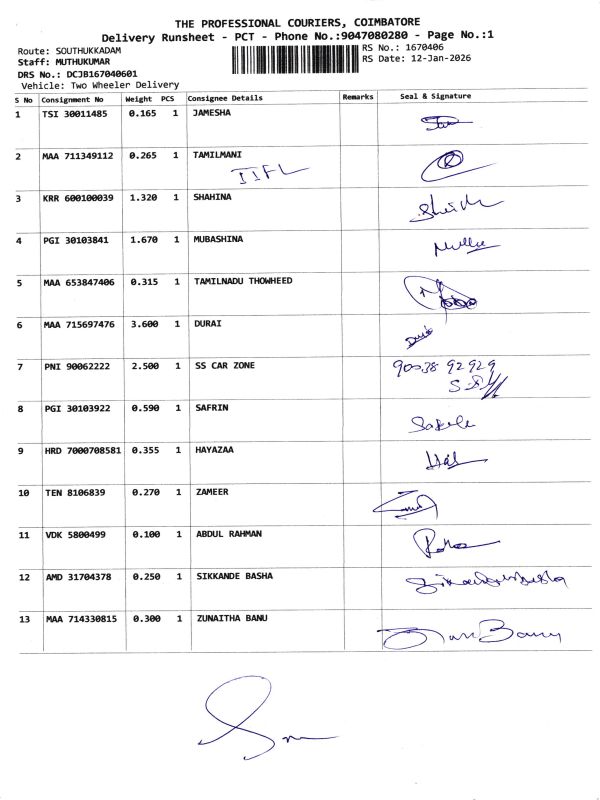 THE PROFESSIONAL COURIERS, COIMBATORE
Delivery Runsheet - PCT - Phone No.:9047080280 - Page No.:1
Route: SOUTHUKKADAM RS No.: 1670406
Staff: MUTHUKUMAR RS Date: 12-Jan-2026
DRS No.: DCJB167040601
Vehicle: Two Wheeler Delivery
S No Consignment No Weight PCS Consignee Details Remarks Seal & Signature
1 TSI 30011485 0.165 1 JAMESHA
2 MAA 711349112 0.265 1 TAMILMANI
IIFL
3 KRR 600100039 1.320 1 SHAHINA
4 PGI 30103841 1.670 1 MUBASHINA
5 MAA 653847406 0.315 1 TAMILNADU THOWHEED
6 MAA 715697476 3.600 1 DURAI
7 PNI 90062222 2.500 1 SS CAR ZONE 90038 92929
8 PGI 30103922 0.590 1 SAFRIN
9 HRD 7000708581 0.355 1 HAYAZAA
10 TEN 8106839 0.270 1 ZAMEER
11 VDK 5800499 0.100 1 ABDUL RAHMAN
12 AMD 31704378 0.250 1 SIKKANDE BASHA
13 MAA 714330815 0.300 1 ZUNAITHA BANU